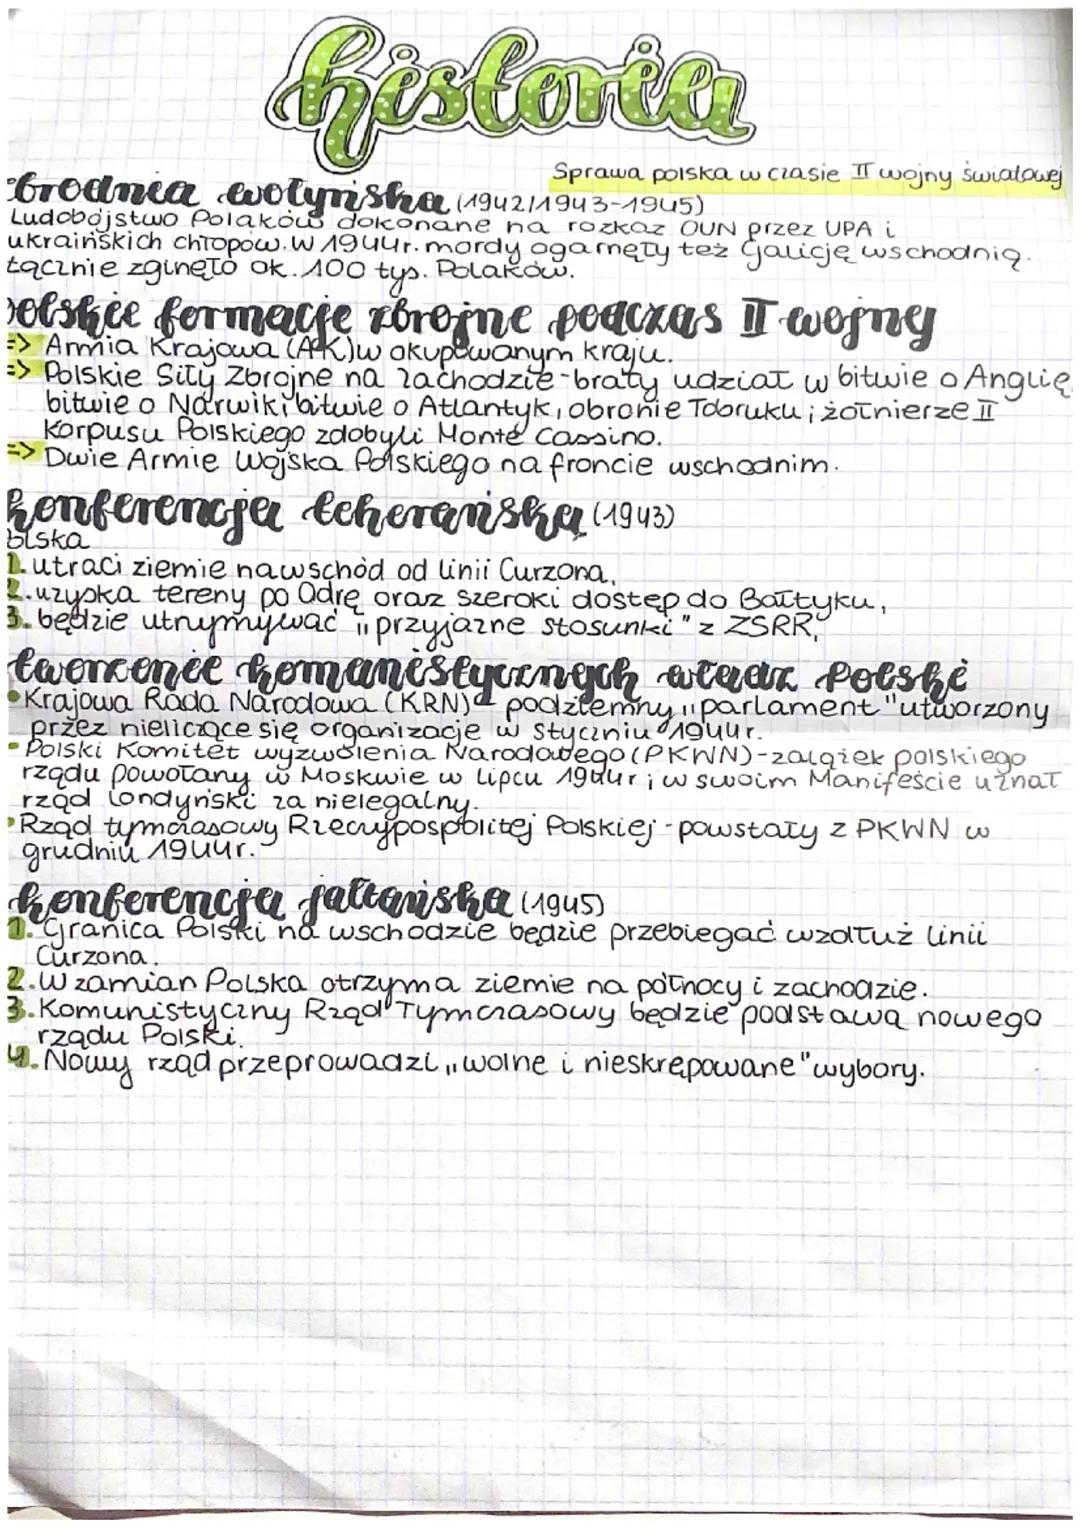 historia
Sprawa polska w czasie II wojny światowej
zbrodnia wołyńska (1942/1943-1945)
Ludobójstwo Polaków dokonane na rozkaz OUN przez UPA i
ukraińskich chłopów. W 1944r. mordy ogarnęły też Galicję wschodnią.
Łącznie zginęło ok. 100 tys. Polaków.
polskie formacje zbrojne podczas II wojny
=> Armia Krajowa (AK) w okupowanym kraju.
=> Polskie Siły Zbrojne na zachodzie - brały udział w bitwie o Anglię,
bitwie o Narwik, bitwie o Atlantyk, obronie Tobruku; żołnierze II
Korpusu Polskiego zdobyli Monte Cassino.
=> Dwie Armie Wojska Polskiego na froncie wschodnim.
konferencja teherańska (1943)
olska
1. utraci ziemie na wschód od linii Curzona,
2. uzyska tereny po Odrę oraz szeroki dostęp do Bałtyku,
3. będzie utrzymywać "przyjazne stosunki" z ZSRR,
tworzenie komunistycznych władz Polski
• Krajowa Rada Narodowa (KRN) - podziemny "parlament" utworzony
przez nieliczące się organizacje w styczniu 1944r.
• Polski Komitet wyzwolenia Narodowego (PKWN) - zalążek polskiego
rządu powołany w Moskwie w lipcu 1944r; w swoim Manifeście uznał
rząd londyński za nielegalny.
• Rząd tymczasowy Rzeczypospolitej Polskiej - powstały z PKWN w
grudniu 1944r.
konferencja jałtańska (1945)
1. Granica Polski na wschodzie będzie przebiegać wzdłuż linii
Curzona.
2. W zamian Polska otrzyma ziemie na północy i zachodzie.
3. Komunistyczny Rząd Tymczasowy będzie podstawą nowego
rządu Polski.
4. Nowy rząd przeprowadzi „wolne i nieskrępowane" wybory.